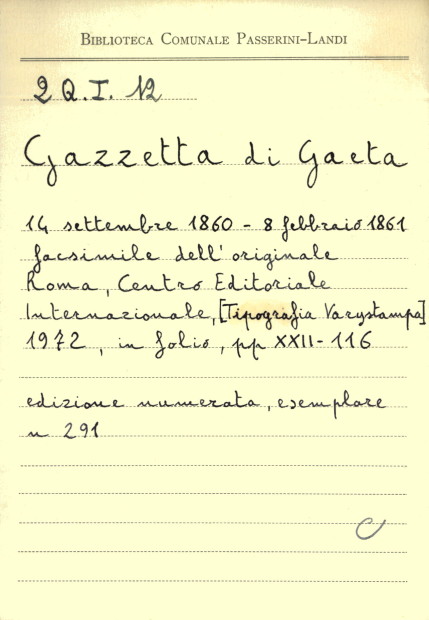 BIBLIOTECA COMUNALE PASSERINI-LANDI
2 Q.I. 12
Gazzetta di Gaeta
14 settembre 1860 - 8 febbraio 1861
facsimile dell'originale
Roma, Centro Editoriale
Internazionale, [Tipografia Varystampa]
1972, in folio, pp XXII-116
edizione numerata, esemplare
n 291
C